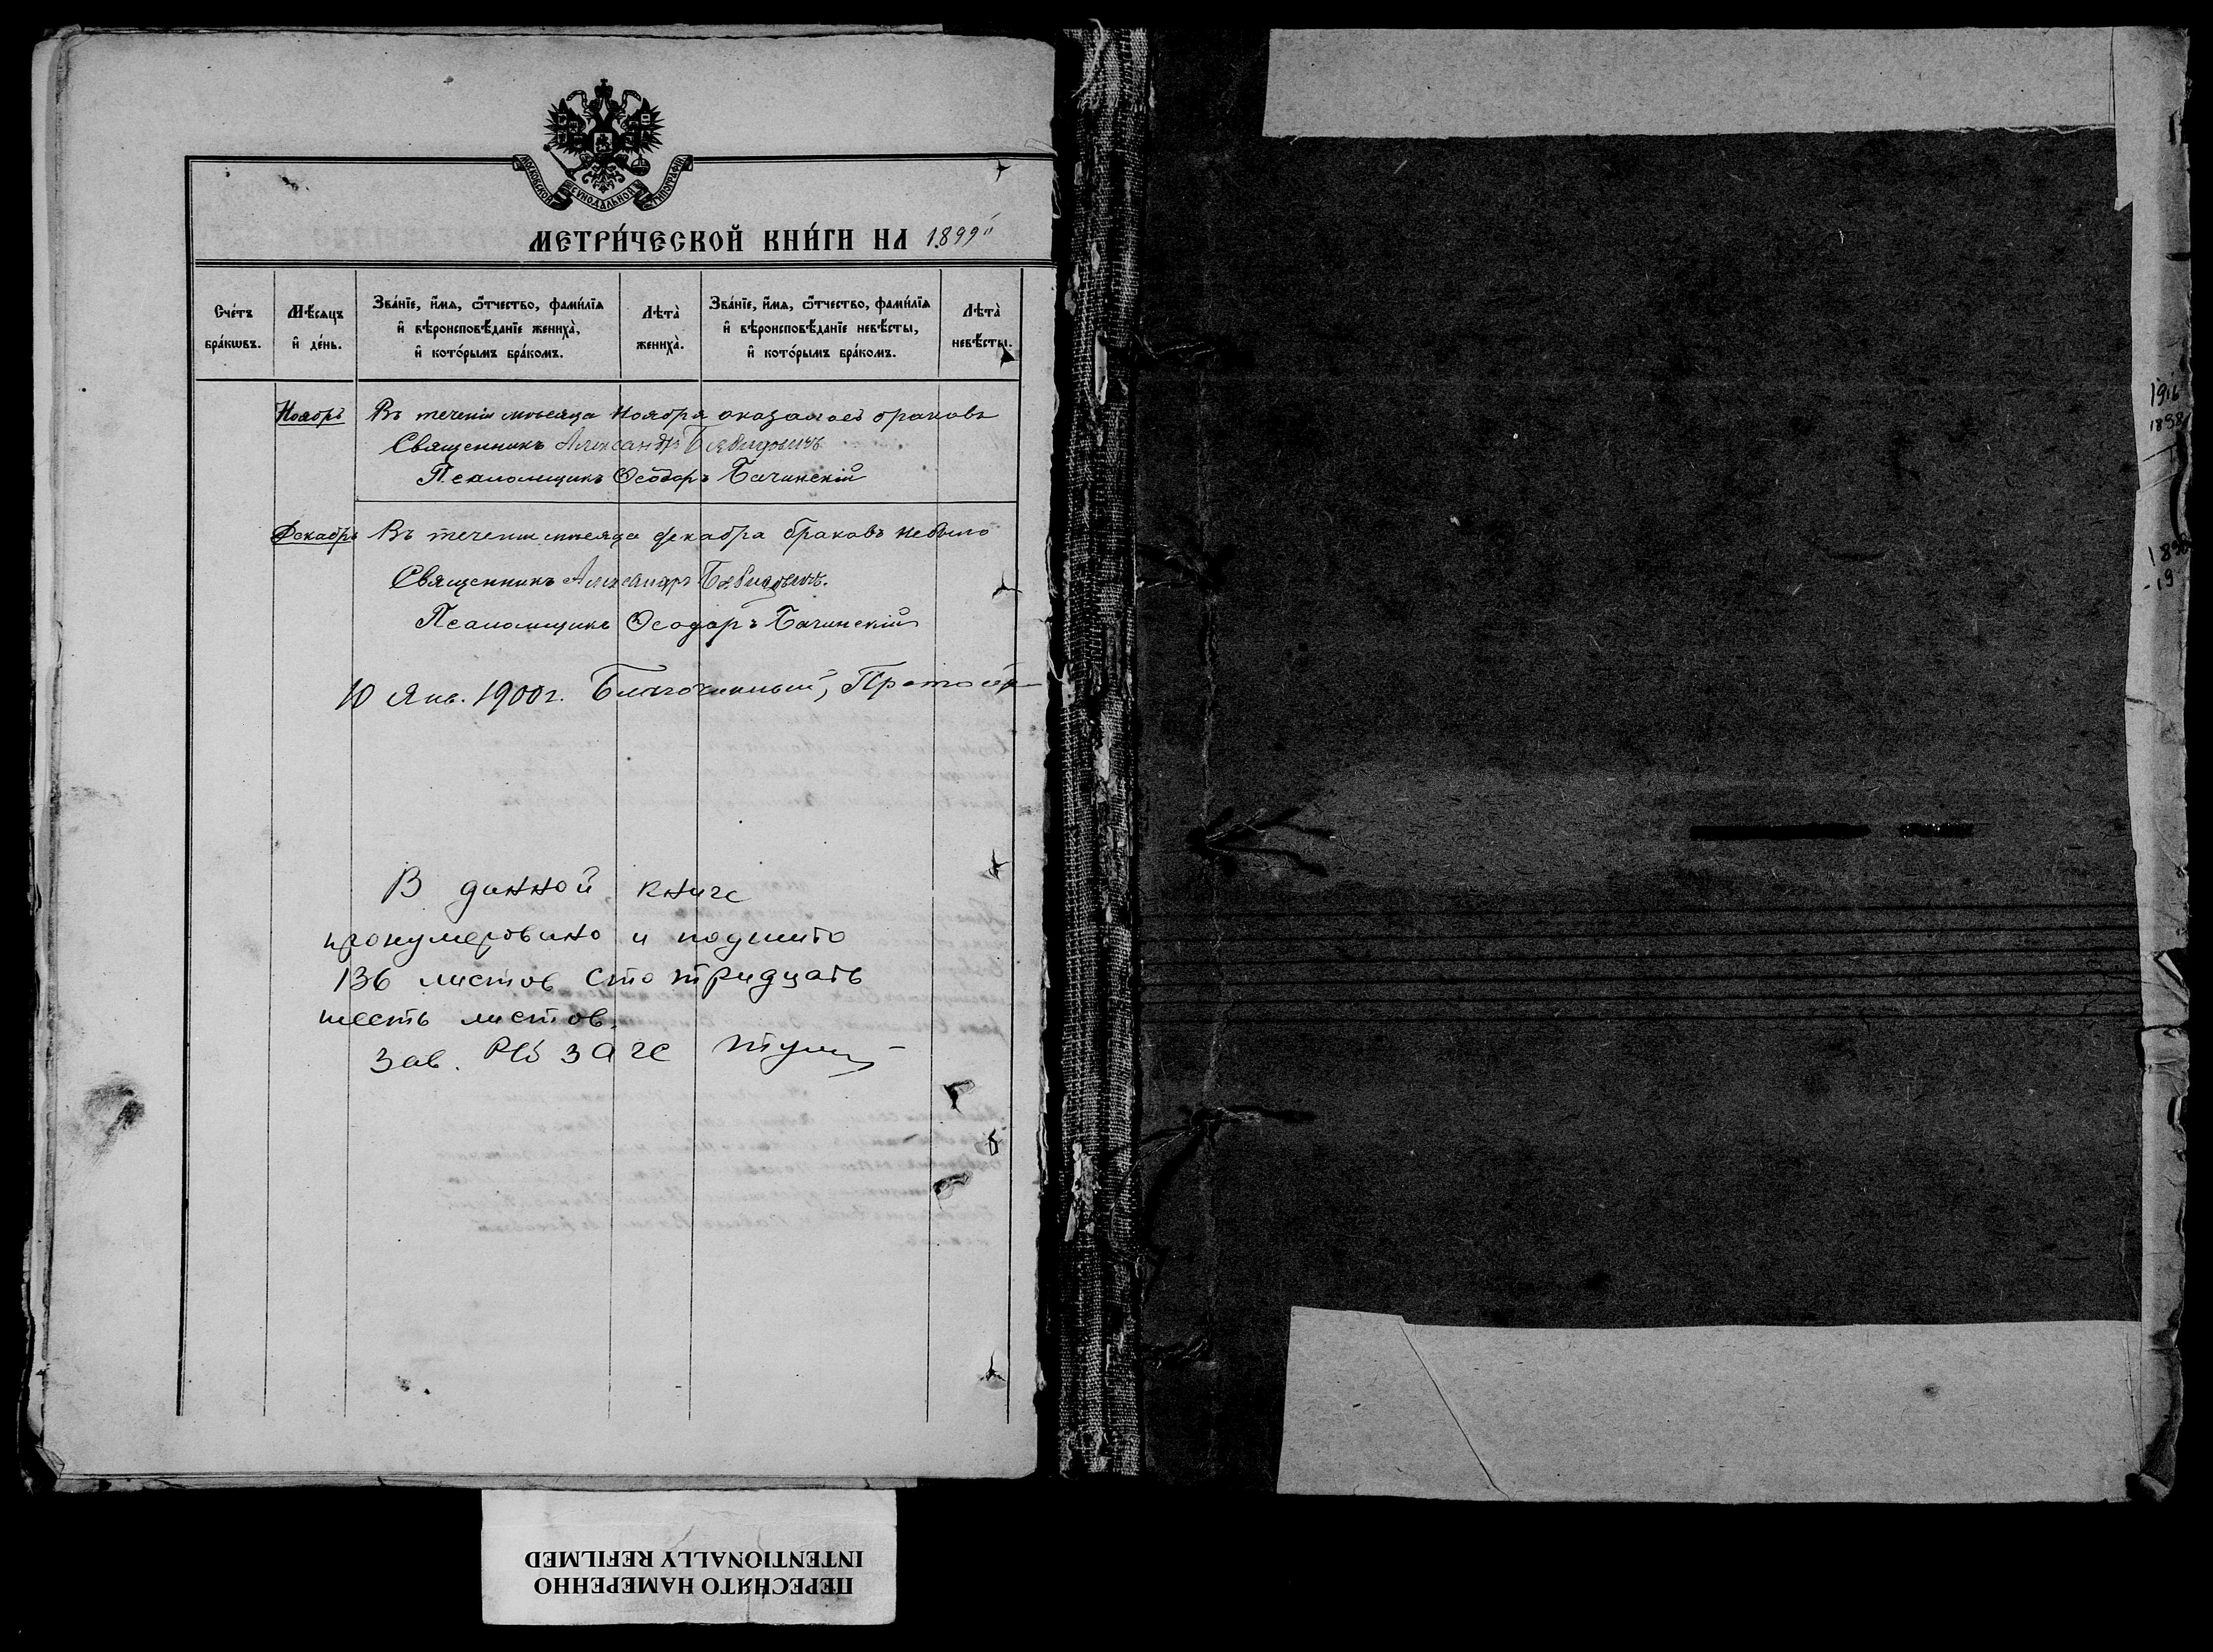 МОСКОВСКОЙ СѴНОДАЛЬНОЙ ТИПОГРАФІИ
МЕТРИ́ЧЕСКОЙ КНИ́ГИ НА 1899
Сче́тъ бра́кѡвъ.
Мѣ́сяцъ и҆ де́нь.
Зва́нїе, и҆́мя, ѻ҆́тчество, фами́лїя и҆ вѣроисповѣ́данїе жениха̀, и҆ кото́рымъ бра́комъ.
Лѣта̀ жениха̀.
Зва́нїе, и҆́мя, ѻ҆́тчество, фами́лїя и҆ вѣроисповѣ́данїе невѣ́сты, и҆ кото́рымъ бра́комъ.
Лѣта̀ невѣ́сты.
Ноябрь Въ теченіи мѣсяца Ноября браковъ
Священникъ Александръ
Псаломщикъ Ѳеодоръ Бачинскій
Декабрь Въ теченіи мѣсяца декабря браковъ небыло
Священникъ Александръ
Псаломщикъ Ѳеодоръ Бачинскій
10 Янв. 1900 г. Благочинный, Протоіер
В данной книге
пронумеровано и подшито
136 листов сто тридцать
шесть листов.
Зав. РБ ЗАГС
1916
1898
189
19
ПЕРЕСНЯТО НАМЕРЕННО
INTENTIONALLY REFILMED